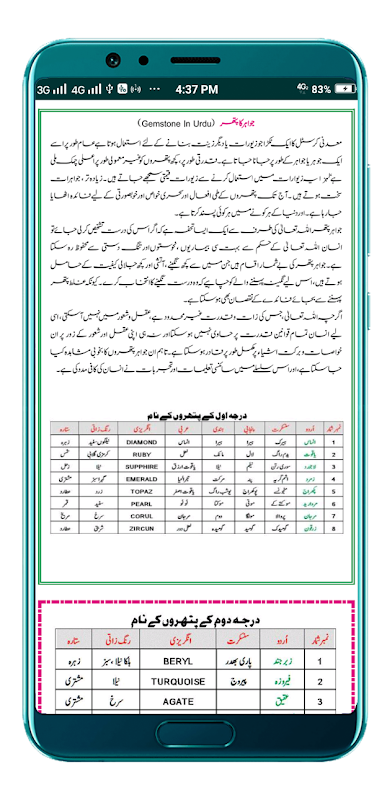 3G 4G 4:37 PM 4G 83%
جواہر کا پتھر (Gemstone In Urdu)
معدنی کرسٹل کا ایک ٹکڑا جو زیورات یا دیگر زینت بنانے کے لئے استعمال ہوتا ہے عام طور پر اسے
ایک جوہر یا جواہر کے طور پر جانا جاتا ہے۔ قدرتی طور پر، کچھ پتھروں کو غیر معمولی طور پر اعلی چمک ملی
ہے لہٰذا یہ زیورات میں استعمال کرنے سے زیورات قیمتی سمجھے جاتے ہیں۔ زیادہ تر، جواہرات
سخت ہوتے ہیں۔ آج تک پتھروں کے طبی افعال اور سحری خواص اور خوبصورتی کے لیے فائدہ اٹھایا
جا رہا ہے۔ اور دنیا کے ہر کونے میں ہر کوئی پسند کرتا ہے۔
جواہر پتھر اللہ تعالی کی طرف سے ایک ایسا تحفہ ہے کہ اگر اس کی درست تشخص کر لی جائے تو
انسان اللہ تعالی کے حکم سے بہت سی بیماریوں، نحوستوں اور تنگ دستی سے محفوظ رہ سکتا
ہے۔ جواہر پتھر کی بے شمار اقسام ہیں جن میں سے کچھ نگینے، آتشی اور کچھ جلالی کیفیت کے حامل
ہوتے ہیں، اس لیے نگینہ پہننے والے کو چاہیے کہ وہ درست نگینے کا انتخاب کرے۔ کیونکہ غلط پتھر
پہننے سے بجائے فائدے کے نقصان بھی ہو سکتا ہے۔
اگرچہ اللہ تعالیٰ جس کی ذات و قدرت غیر محدود ہے عقل و شعور میں نہیں آ سکتی، اسی
لیے انسان تمام قوانین قدرت پر حاوی نہیں ہو سکتا اور نہ ہی اپنی عقل اور شعور کے زور پر ان
خواصات و برکت اشیاء پر مکمل طور پر قادر ہو سکتا ہے۔ تاہم ان جواہر پتھروں کا بخوبی مشاہدہ کیا
جا سکتا ہے، اور اس سلسلے میں سائنسی تعلیمات اور تجربات نے انسان کی کافی مدد کی ہے۔
درجہ اول کے پتھروں کے نام
نمبر شمار اُردو سنسکرت پنجابی ہندی عربی انگریزی رنگ ذاتی ستارہ
1 الماس ہیرک ہیرا ہیرا الماس DIAMOND سفید زہرہ
2 یاقوت پدم راگ لال مانک لعل RUBY شمس
3 لاجورد نیلم نیلا یاقوت ازرق SUPPHIRE نیلا زحل
4 زمرد پنہ مرکت EMERALD سبز مشتری
5 پکھراج پکھراج یاقوت اصفر TOPAZ زرد عطارد
6 مروارید موتی موتکا لولو PEARL سفید قمر
7 مرجان مونگا موم مرجان CORUL سرخ مریخ
8 زرقون گومیدک گومید گومیدہ ZIRCUN شربتی عطارد
درجہ دوم کے پتھروں کے نام
نمبر شمار اُردو سنسکرت انگریزی رنگ ذاتی ستارہ
1 زبرجد BERYL ہلکا نیلا، سبز زہرہ
2 فیروزہ پیروج TURQUOISE نیلا مشتری
3 عقیق AGATE سرخ مشتری